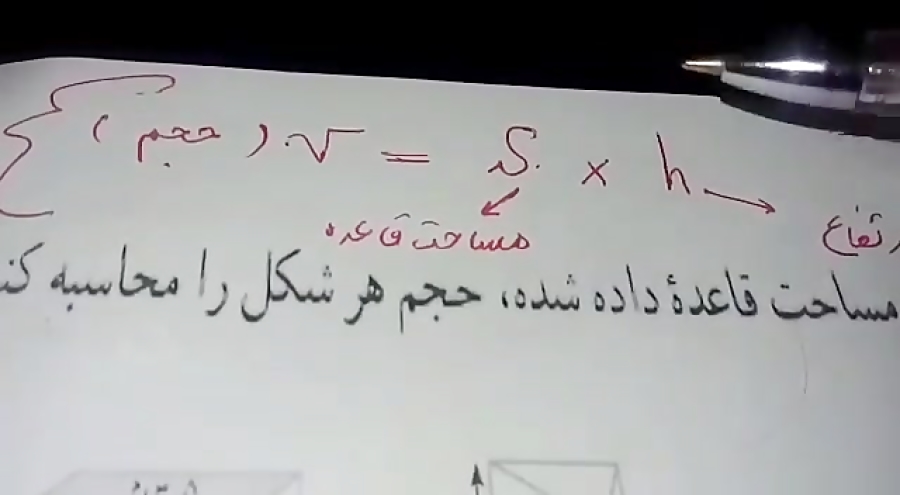 (حجم) V = S × h
مساحت قاعده
مساحت قاعدهٔ داده شده، حجم هر شکل را محاسبه